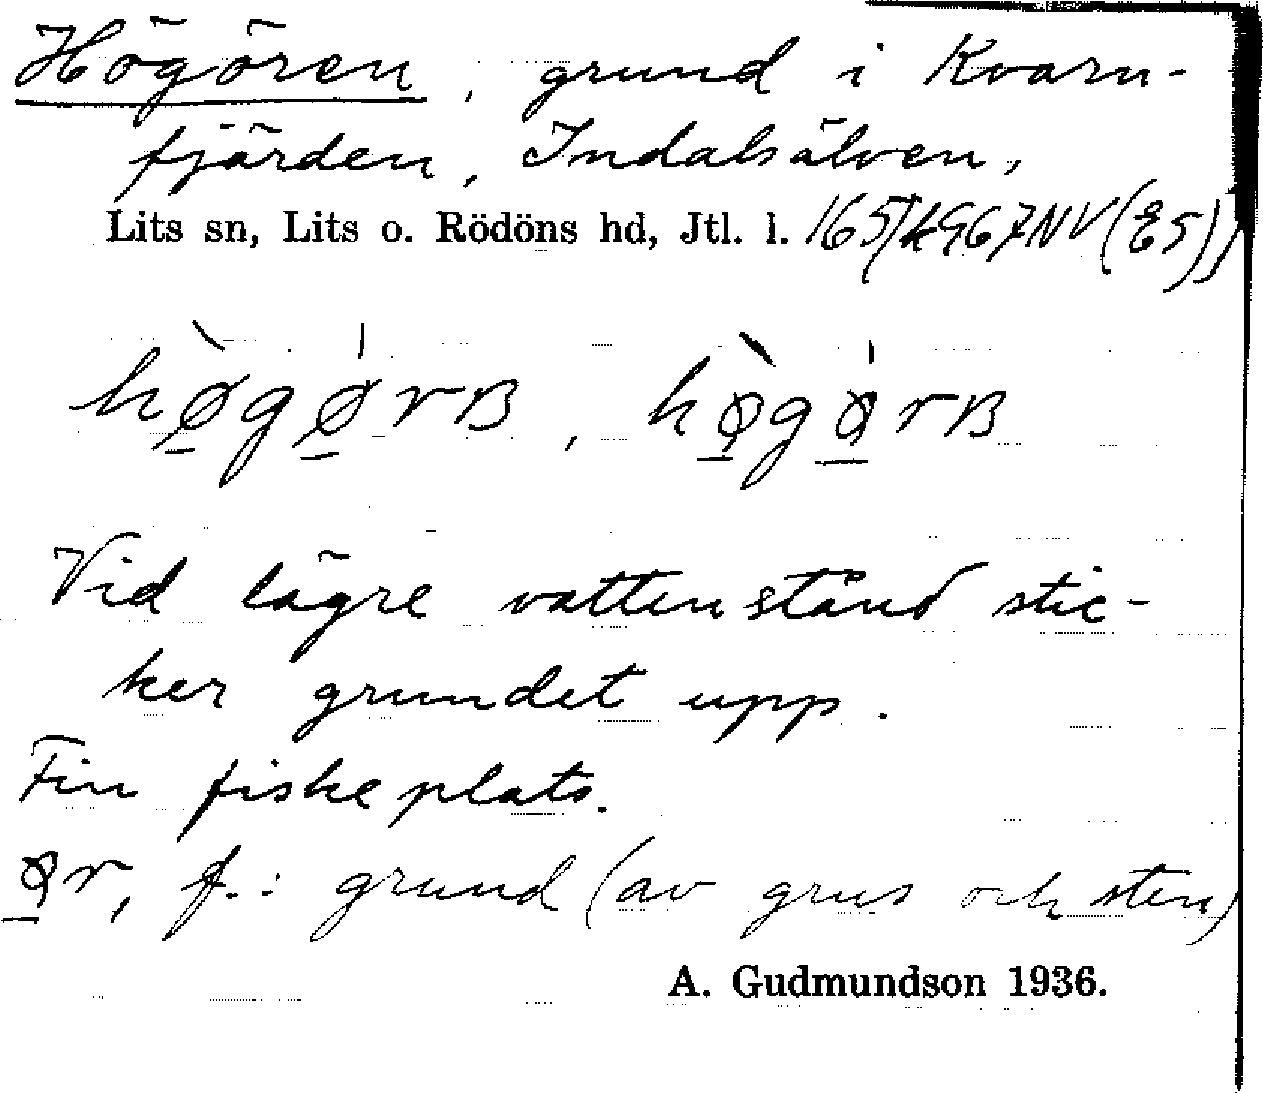 Högören, grund i Kvarn-
fjärden, Indalsälven,
Lits sn, Lits o. Rödöns hd, Jtl. l.
hø̱̀gǿ̱rʙ, hø̱̀gǿ̱rʙ
Vid lägre vattenstånd stic-
ker grundet upp.
Fin fiskeplats.
ø̱r, f.: grund (av grus och sten)
A. Gudmundson 1936.